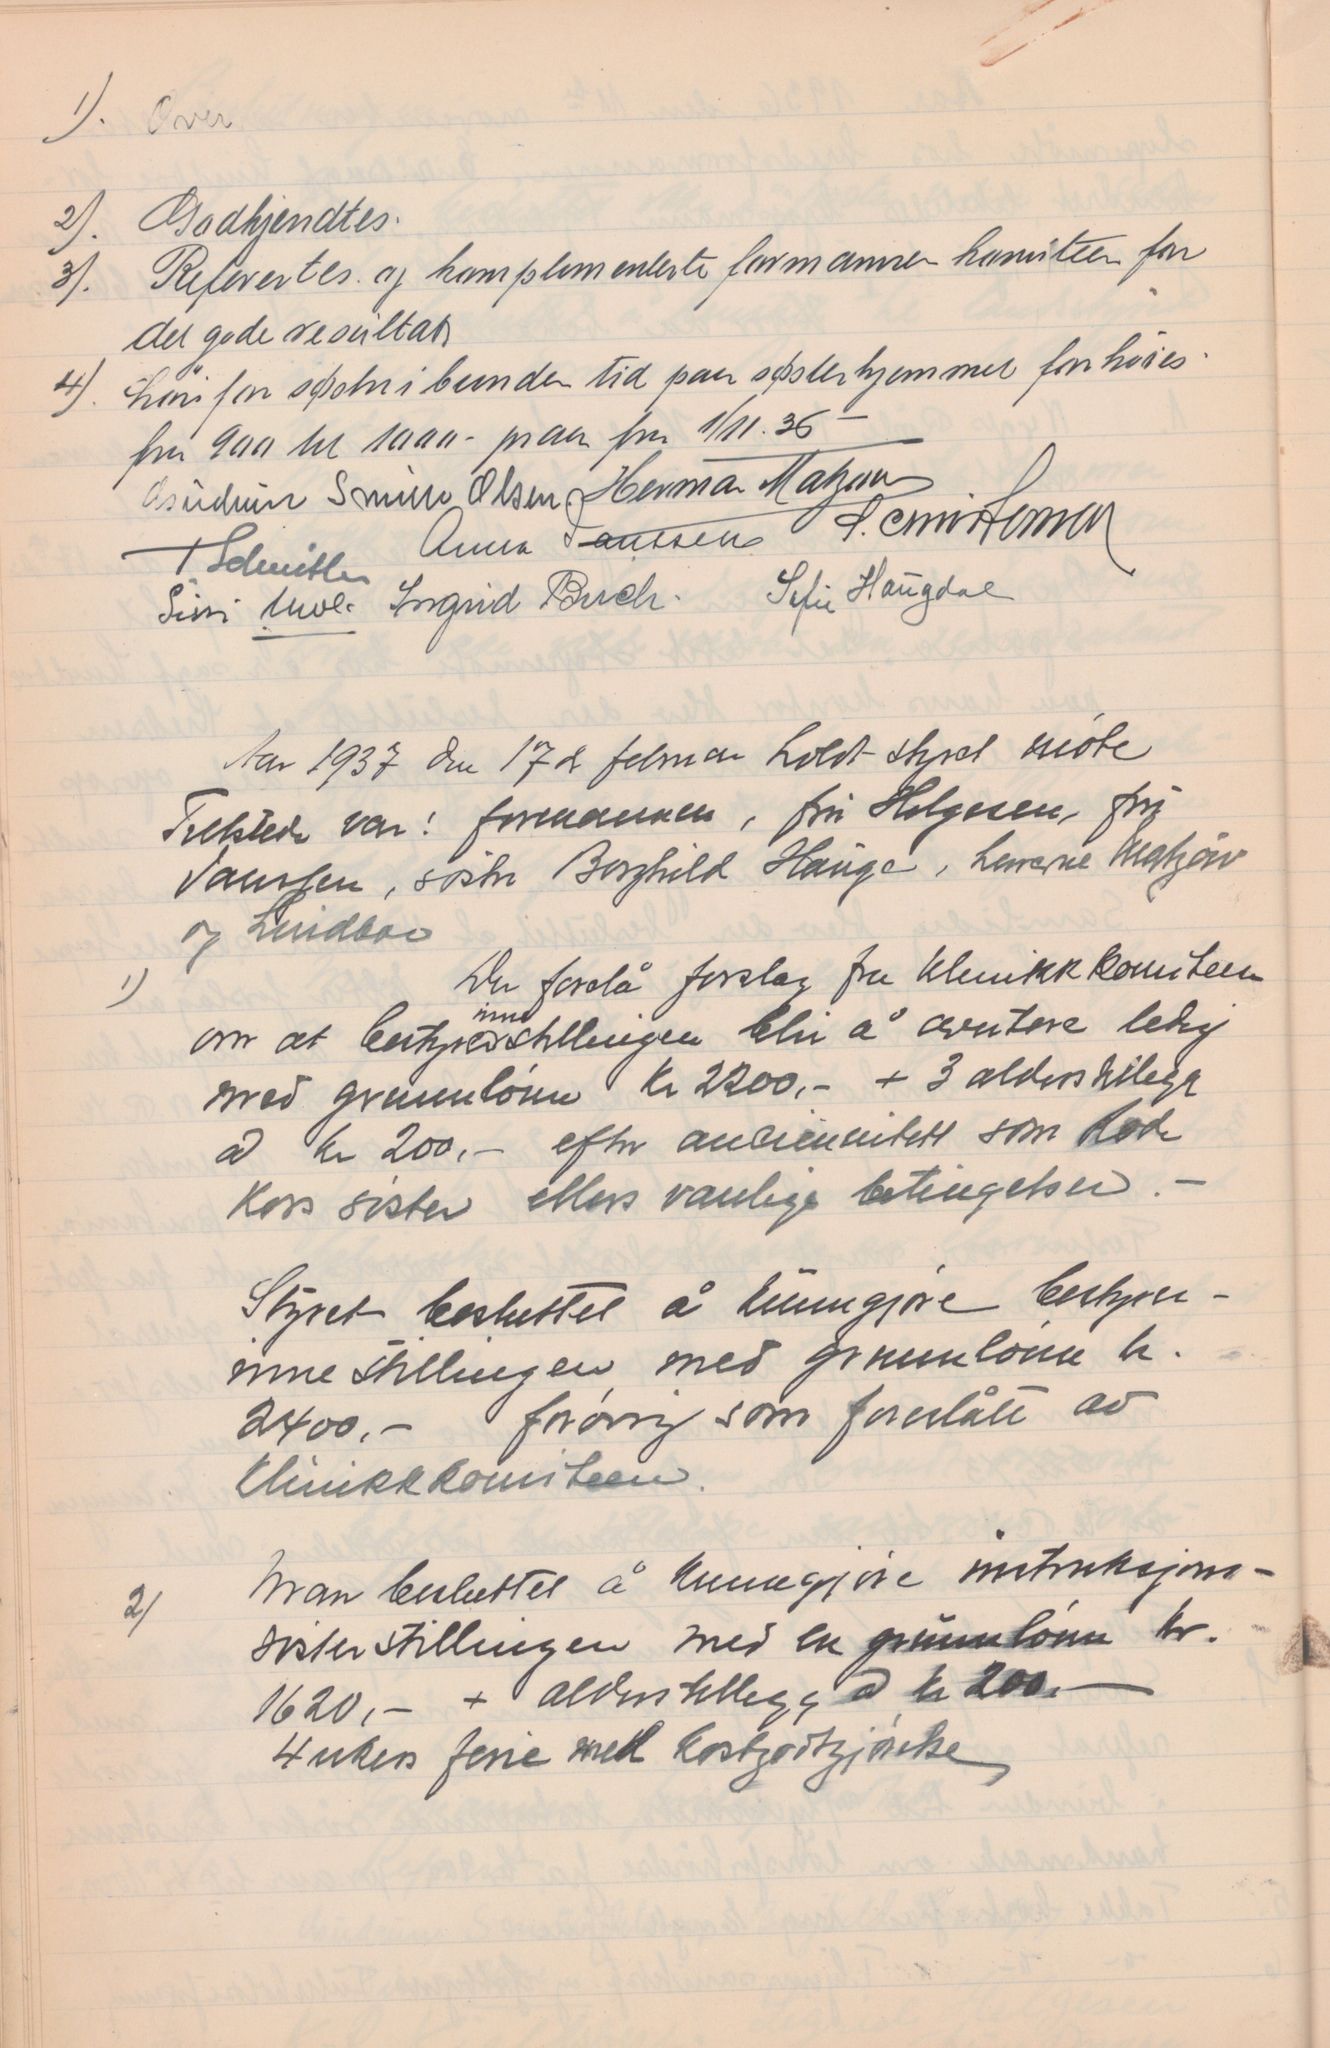 1). Over
2). Godkjendtes.
3). Refertes. og komplementerte formannen komiteen for
det gode resultat
4). Lön for søstre i bunden tid paa søsterhjemmet forhöies
fra 900 til 1000- pr aar fra 1/11.36 -
Olsen. Herman Matzow
T Schmitler Anna Janssen
Siri Ingrid Buch. Sofie Haugdal
Aar 1937 den 17de februar holdt styret möte
Tilstede var: formannen, frü Helgesen, frü
Janssen, söster Borghild Hauge, herrerne Matzow
og Lindboe
1) Der forelå forslag fra Klinikkkomiteen
om at bestyrerinnestillingen blir å avertere ledig
med grunnlönn Kr 2200,- + 3 alderstillegg
à kr 200,- efter anciennitet som Röde
Kors söster ellers vanlige betingelser.-
Styret besluttet å kunngjöre bestyrer-
innestillingen med grunnlönn kr.
2400,- forövrig som foreslått av
Klinikkkomiteen.
2) Man besluttet å kunngjöre instruksjons-
sösterstillingen med en grunnlönn kr.
1620,- + alderstillegg à kr 200.-
4 ukers ferie med kostgodtgjörelse